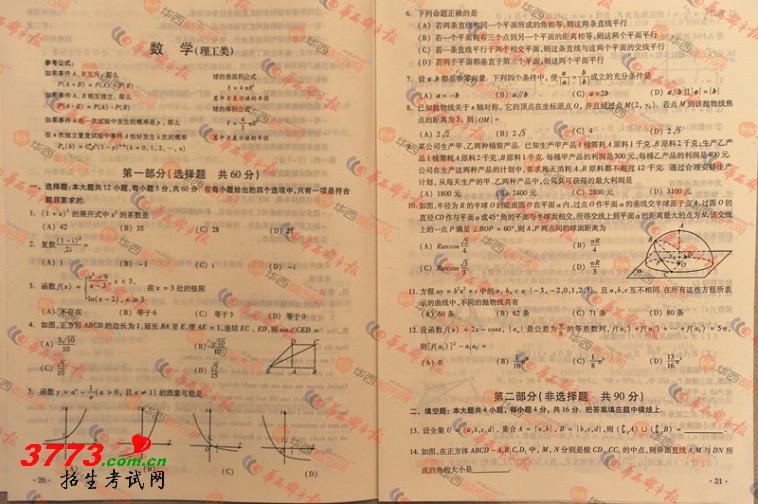 数 学(理工类)
参考公式:
如果事件A、B互斥,那么 球的表面积公式
P(A+B)=P(A)+P(B) S=4πR²
如果事件A、B相互独立,那么 其中R表示球的半径
P(A·B)=P(A)·P(B) 球的体积公式
如果事件A在一次试验中发生的概率是p,那么
在n次独立重复试验中事件A恰好发生k次的概率 其中R表示球的半径
第一部分(选择题 共60分)
一、选择题:本大题共12小题,每小题5分,共60分。在每小题给出的四个选项中,只有一项是符合
题目要求的.
1. (1+x)⁷的展开式中x²的系数是
(A) 42 (B) 35 (C) 28 (D) 21
2. 复数(1-i)²/2i=
(A) 1 (B) -1 (C) i (D) -i
3. 函数f(x)= x²-9/x-3, x<3, ln(x-2), x≥3 在x=3处的极限
(A) 不存在 (B) 等于6 (C) 等于3 (D) 等于0
4. 如图,正方形ABCD的边长为1,延长BA至E,使AE=1,连结EC、ED,则sin∠CED=
(A) 3√10/10 (B) √10/10
(C) √5/10 (D) √5/15
D C
E A B
5. 函数y=aˣ-1/a(a>0,且a≠1)的图象可能是
(A) (B) (C) (D)
·20·
6. 下列命题正确的是
(A) 若两条直线和同一个平面所成的角相等,则这两条直线平行
(B) 若一个平面内有三个点到另一个平面的距离相等,则这两个平面平行
(C) 若一条直线平行于两个相交平面,则这条直线与这两个平面的交线平行
(D) 若两个平面都垂直于第三个平面,则这两个平面平行
7. 设a、b都是非零向量.下列四个条件中,使a/|a|=b/|b|成立的充分条件是
(A) a=-b (B) a∥b (C) a=2b (D) a∥b且|a|=|b|
8. 已知抛物线关于x轴对称,它的顶点在坐标原点O,并且经过点M(2,y₀).若点M到该抛物线焦
点的距离为3,则|OM|=
(A) 2√2 (B) 2√3 (C) 4 (D) 2√5
9. 某公司生产甲、乙两种桶装产品.已知生产甲产品1桶需耗A原料1千克、B原料2千克;生产乙产
品1桶需耗A原料2千克、B原料1千克.每桶甲产品的利润是300元,每桶乙产品的利润是400元.
公司在生产这两种产品的计划中,要求每天消耗A、B原料都不超过12千克.通过合理安排生产
计划,从每天生产的甲、乙两种产品中,公司共可获得的最大利润是
(A) 1800元 (B) 2400元 (C) 2800元 (D) 3100元
10. 如图,半径为R的半球O的底面圆O在平面α内,过点O作平面α的垂线交半球面于点A,过圆O的
直径CD作与平面α成45°角的平面与半球面相交,所得交线上到平面α的距离最大的点为B,该交线
上的一点P满足∠BOP=60°,则A、P两点间的球面距离为
(A) Rarccos√2/4 (B) πR/4
(C) Rarccos√3/3 (D) πR/3
11. 方程ay=b²x²+c中的a,b,c∈{-3,-2,0,1,2,3},且a,b,c互不相同.在所有这些方程所表
示的曲线中,不同的抛物线共有
(A) 60条 (B) 62条 (C) 71条 (D) 80条
12. 设函数f(x)=2x-cosx,{aₙ}是公差为π/8的等差数列,f(a₁)+f(a₂)+…+f(a₅)=5π,
则[f(a₃)]²-a₁a₅=
(A) 0 (B) 1/16π² (C) 1/8π² (D) 13/16π²
第二部分(非选择题 共90分)
二、填空题:本大题共4小题,每小题4分,共16分.把答案填在题中横线上.
13. 设全集U={a,b,c,d},集合A={a,b},B={b,c,d},则(∁ᵤA)∪(∁ᵤB)=
14. 如图,在正方体ABCD-A₁B₁C₁D₁中,M、N分别是棱CD、CC₁的中点,则异面直线A₁M与DN所
成的角的大小是
·21·
3773.com.cn
招生考试网